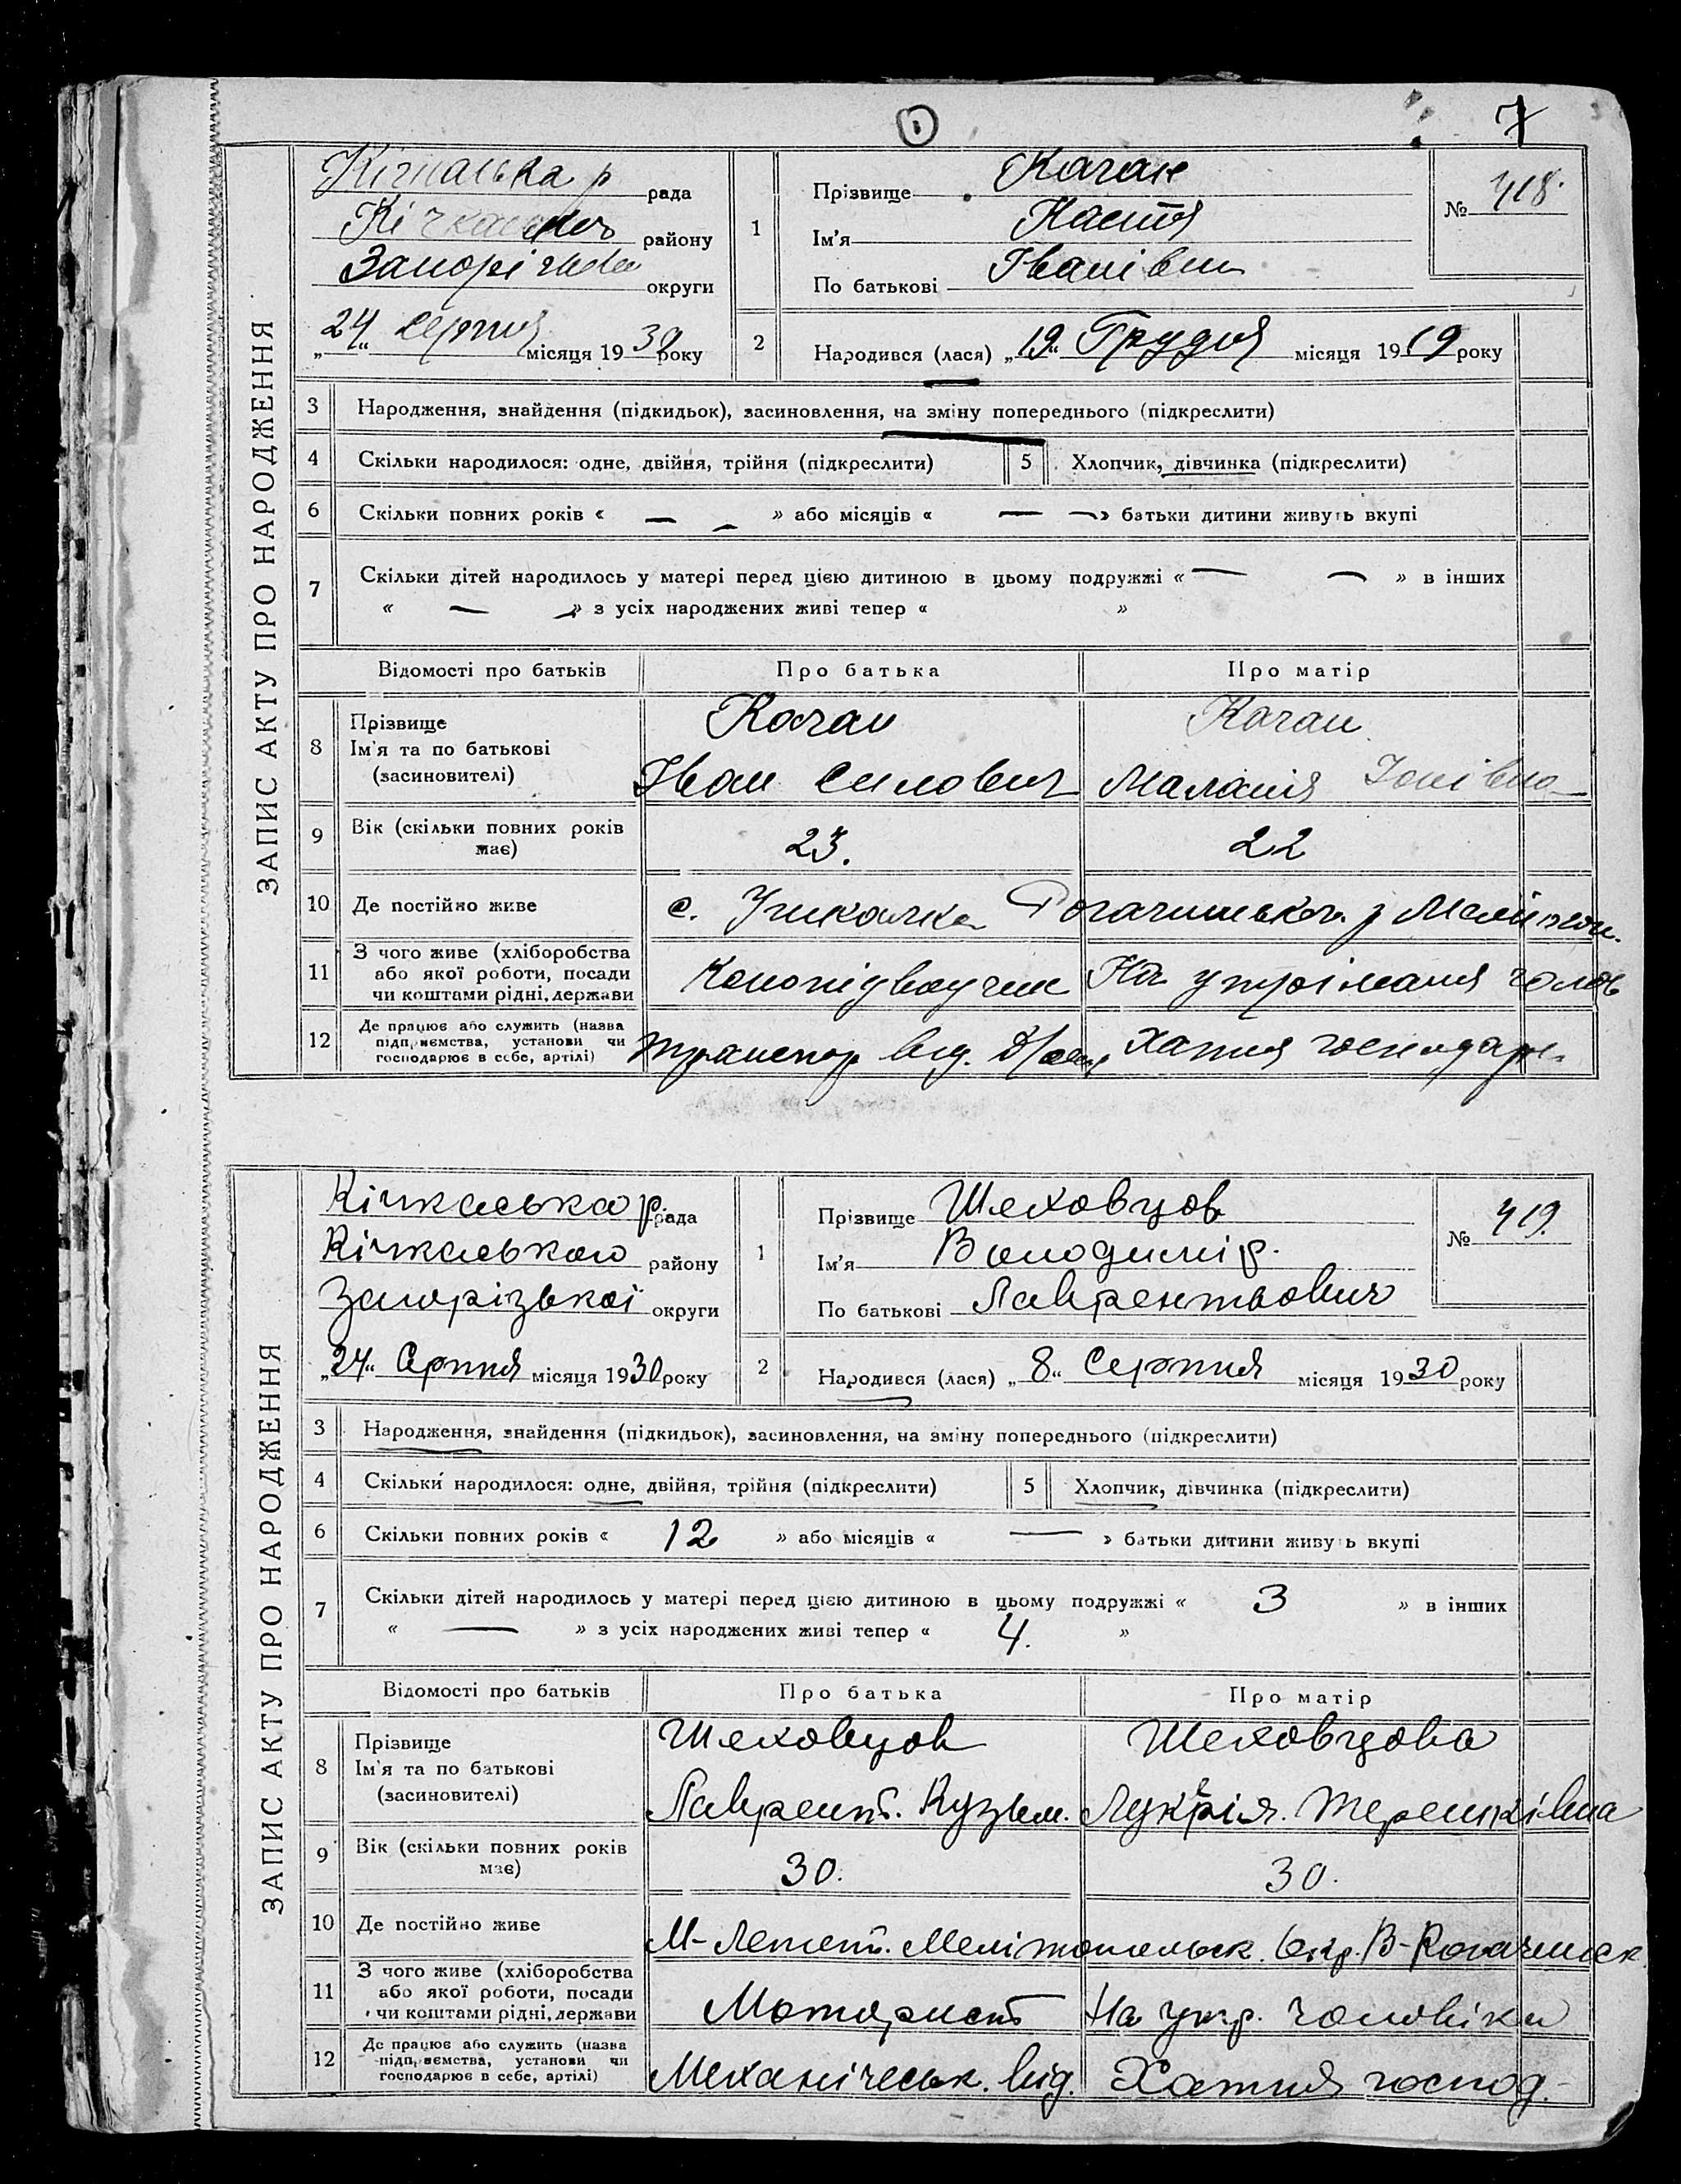 7
ЗАПИС АКТУ ПРО НАРОДЖЕННЯ
рада
району
округи
„24“ Серпня місяця 1930 року
1
Прізвище Качан
Ім'я Настя
По батькові Іванівна
№ 418.
2
Народився (лася) „19“ Грудня місяця 1919 року
3 Народження, знайдення (підкидьок), засиновлення, на зміну попереднього (підкреслити)
4 Скільки народилося: одне, двійня, трійня (підкреслити)
5 Хлопчик, дівчинка (підкреслити)
6 Скільки повних років « — » або місяців « — » батьки дитини живуть вкупі
7 Скільки дітей народилось у матері перед цією дитиною в цьому подружжі « — » в інших
« — » з усіх народжених живі тепер « »
Відомості про батьків Про батька Про матір
8 Прізвище
Ім'я та по батькові
(засиновителі)
Качан
Іван Силович
Качан
Маланія
9 Вік (скільки повних років
має)
23. 22
10 Де постійно живе
с.
11 З чого живе (хліборобства
або якої роботи, посади
чи коштами рідні, держави
На
12 Де працює або служить (назва
підприємства, установи чи
господарює в себе, артілі)
від. Хатня господар.
ЗАПИС АКТУ ПРО НАРОДЖЕННЯ
Кічкаська р. рада
Кічкаського району
Запорізької округи
„24“ Серпня місяця 1930 року
1
Прізвище Шеховцов
Ім'я Володимір.
По батькові Лаврентьович
№ 419.
2
Народився (лася) „8“ Серпня місяця 1930 року
3 Народження, знайдення (підкидьок), засиновлення, на зміну попереднього (підкреслити)
4 Скільки народилося: одне, двійня, трійня (підкреслити)
5 Хлопчик, дівчинка (підкреслити)
6 Скільки повних років « 12 » або місяців « — » батьки дитини живуть вкупі
7 Скільки дітей народилось у матері перед цією дитиною в цьому подружжі « 3 » в інших
« — » з усіх народжених живі тепер « 4. »
Відомості про батьків Про батька Про матір
8 Прізвище
Ім'я та по батькові
(засиновителі)
Шеховцов
Лаврент. Кузьм.
Шеховцова
9 Вік (скільки повних років
має)
30. 30.
10 Де постійно живе
М-Лепет. Мелітопольск. Окр. В-Рогачинск
11 З чого живе (хліборобства
або якої роботи, посади
чи коштами рідні, держави
Моторист На утр. чоловіка
12 Де працює або служить (назва
підприємства, установи чи
господарює в себе, артілі)
Механічеськ. від. Хатня господ.